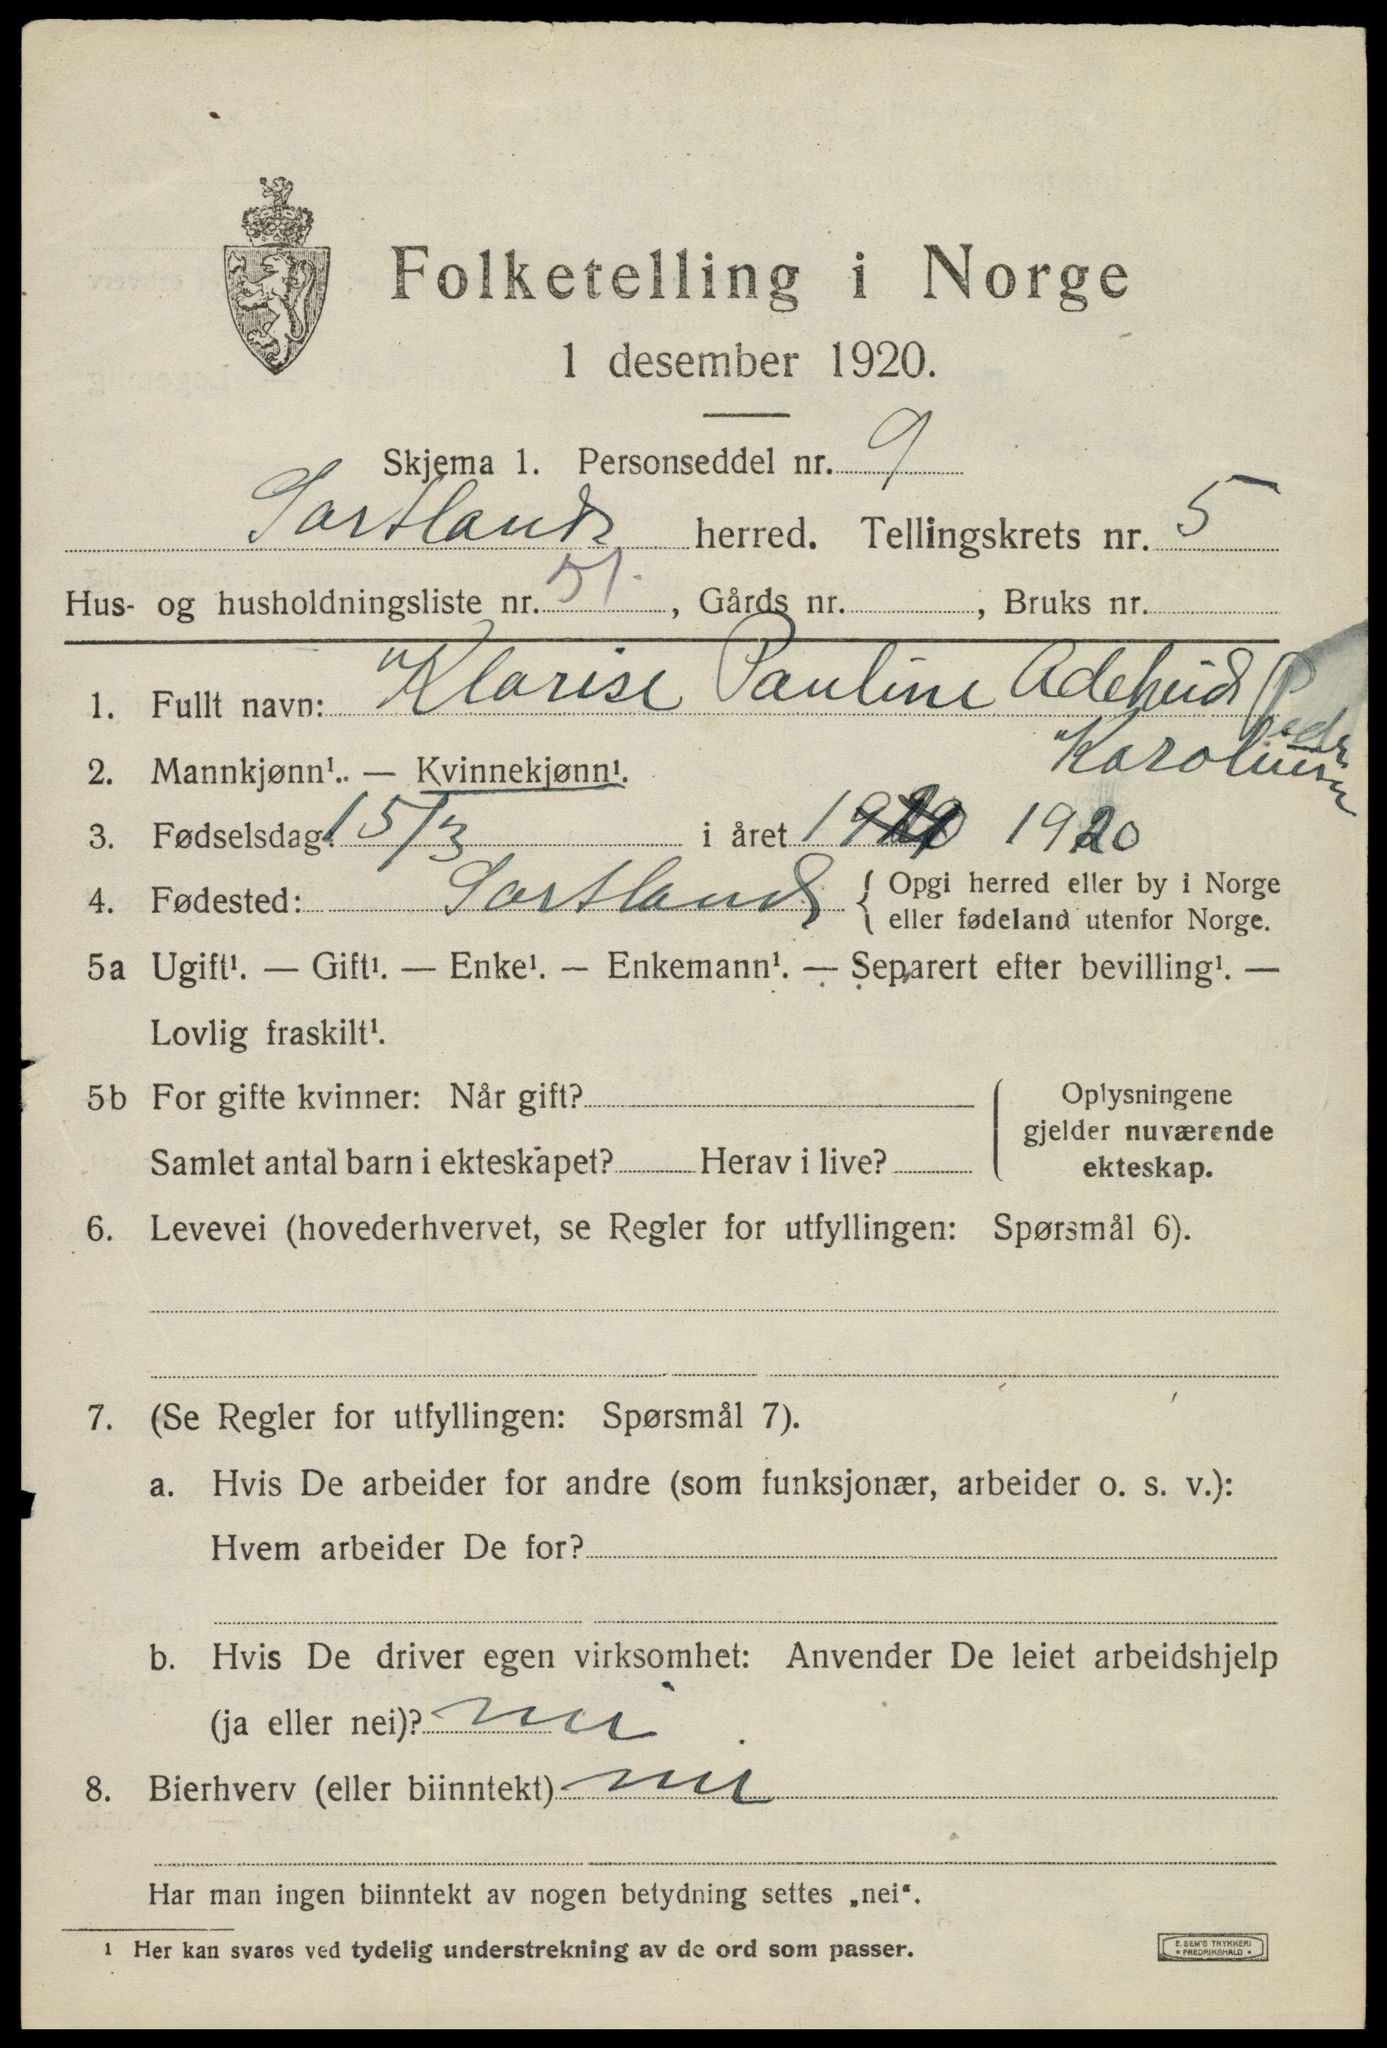 Folketelling i Norge
1 desember 1920.
Skjema 1. Personseddel nr. 9
Sortland herred. Tellingskrets nr. 5
Hus- og husholdningsliste nr. 51. , Gårds nr. , Bruks nr.
1. Fullt navn: Klarise Pauline Adeheid
Karoline
2. Mannkjønn¹. — Kvinnekjønn¹.
3. Fødselsdag: 15/3 i året 1920
4. Fødested: Sortland { Opgi herred eller by i Norge
eller fødeland utenfor Norge.
5a Ugift¹. — Gift¹. — Enke¹. — Enkemann¹. — Separert efter bevilling¹. —
Lovlig fraskilt¹.
5b For gifte kvinner: Når gift?
Samlet antal barn i ekteskapet? Herav i live?
Oplysningene
gjelder nuværende
ekteskap.
6. Levevei (hovederhvervet, se Regler for utfyllingen: Spørsmål 6).
7. (Se Regler for utfyllingen: Spørsmål 7).
a. Hvis De arbeider for andre (som funksjonær, arbeider o. s. v.):
Hvem arbeider De for?
b. Hvis De driver egen virksomhet: Anvender De leiet arbeidshjelp
(ja eller nei)? nei
8. Bierhverv (eller biinntekt) nei
Har man ingen biinntekt av nogen betydning settes „nei“.
¹ Her kan svares ved tydelig understrekning av de ord som passer.
E. SEM'S TRYKKERI
• FREDRIKSHALD •